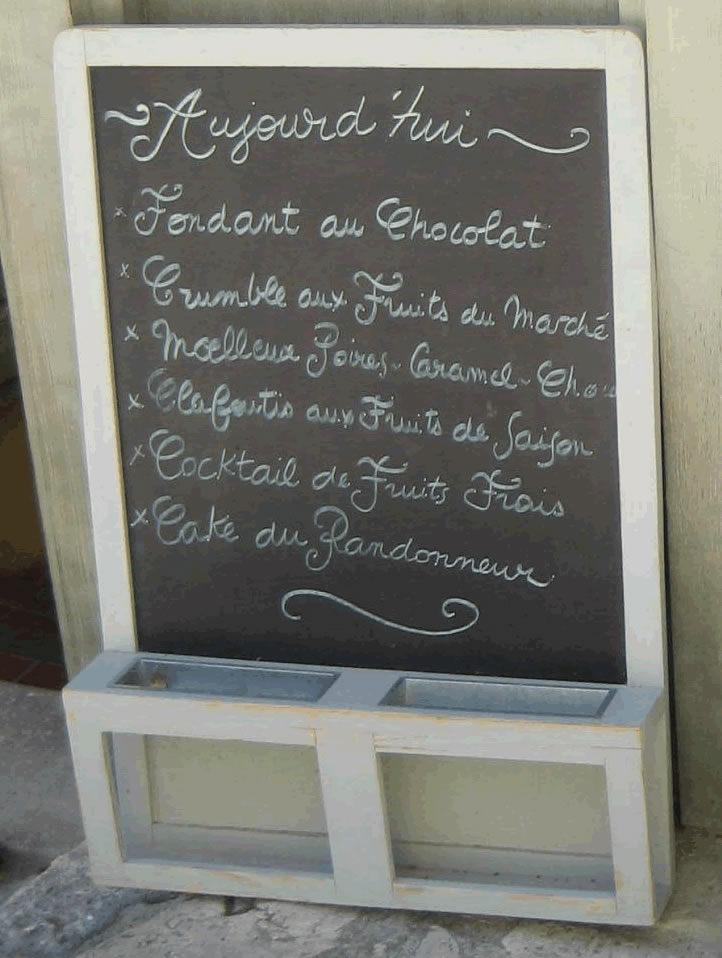 Aujourd'hui
x Fondant au Chocolat
x Crumble aux Fruits du Marché
x Moelleux Poires - Caramel - Choc
x Clafoutis aux Fruits de Saison
x Cocktail de Fruits Frais
x Cake du Randonneur